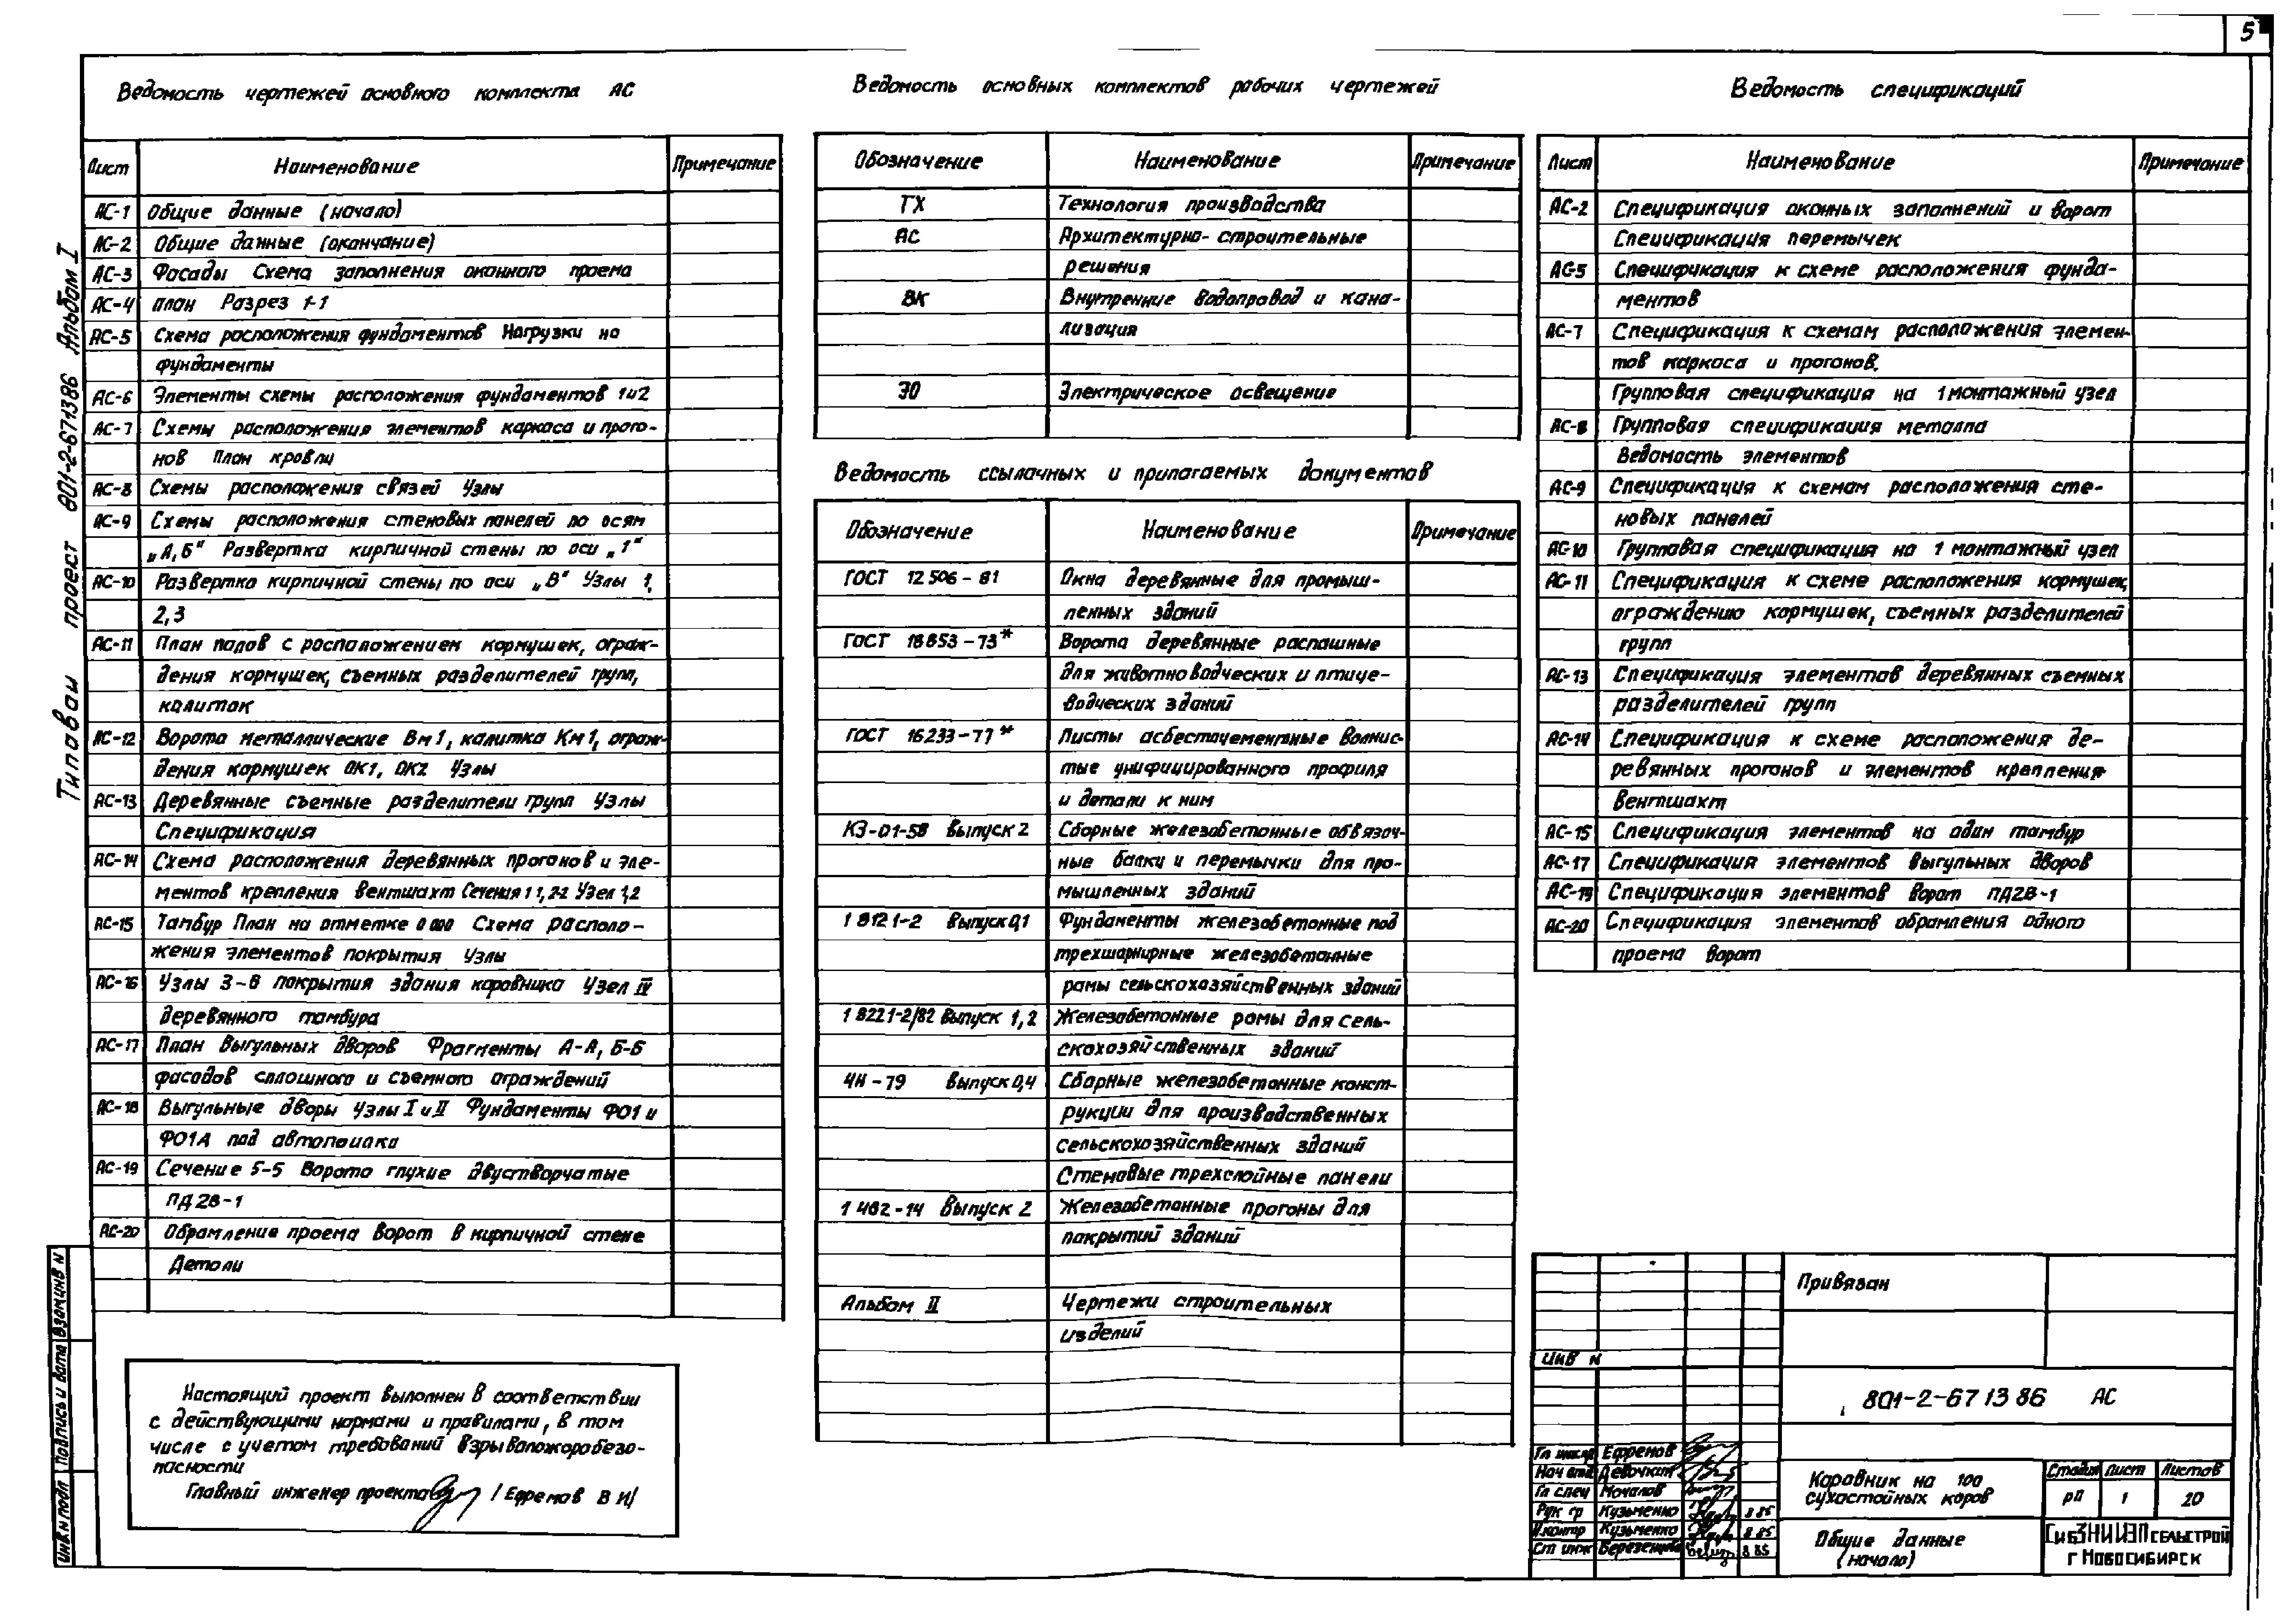 5
Типовой проект 801-2-67 13 86 Альбом I
Ведомость чертежей основного комплекта АС
Лист Наименование Примечание
АС-1 Общие данные (начало)
АС-2 Общие данные (окончание)
АС-3 Фасады Схема заполнения оконного проема
АС-4 План Разрез 1-1
АС-5 Схема расположения фундаментов Нагрузки на
фундаменты
АС-6 Элементы схемы расположения фундаментов 1и2
АС-7 Схемы расположения элементов каркаса и прого-
нов План кровли
АС-8 Схемы расположения связей Узлы
АС-9 Схемы расположения стеновых панелей по осям
„А,Б" Развертка кирпичной стены по оси „1"
АС-10 Развертка кирпичной стены по оси „В" Узлы 1,
2,3
АС-11 План полов с расположением кормушек, ограж-
дения кормушек, съемных разделителей групп,
калиток
АС-12 Ворота металлические Вм1, калитка Км1, ограж-
дения кормушек ОК1, ОК2 Узлы
АС-13 Деревянные съемные разделители групп Узлы
Спецификация
АС-14 Схема расположения деревянных прогонов и эле-
ментов крепления вентшахт Сечения 1 1, 2-2 Узел 1,2
АС-15 Тамбур План на отметке 0 000 Схема располо-
жения элементов покрытия Узлы
АС-16 Узлы 3-8 покрытия здания коровника Узел IV
деревянного тамбура
АС-17 План выгульных дворов Фрагменты А-А, Б-Б
фасадов сплошного и съемного ограждений
АС-18 Выгульные дворы Узлы I и II Фундаменты ФО1 и
ФО1А под автопоилки
АС-19 Сечение 5-5 Ворота глухие двустворчатые
ПД2В-1
АС-20 Обрамление проема ворот в кирпичной стене
Детали
Настоящий проект выполнен в соответствии
с действующими нормами и правилами, в том
числе с учетом требований взрывопожоробезо-
пасности
Главный инженер проекта / Ефремов В И/
Ведомость основных комплектов рабочих чертежей
Обозначение Наименование Примечание
ТХ Технология производства
АС Архитектурно-строительные
решения
ВК Внутренние водопровод и кана-
лизация
ЭО Электрическое освещение
Ведомость ссылочных и прилагаемых документов
Обозначение Наименование Примечание
ГОСТ 12506-81 Окна деревянные для промыш-
ленных зданий
ГОСТ 18853-73* Ворота деревянные распашные
для животноводческих и птице-
водческих зданий
ГОСТ 16233-77* Листы асбестоцементные волнис-
тые унифицированного профиля
и детали к ним
КЭ-01-58 Выпуск 2 Сборные железобетонные обвязоч-
ные балки и перемычки для про-
мышленных зданий
1 812 1-2 Выпуск 0,1 Фундаменты железобетонные под
трехшарнирные железобетонные
рамы сельскохозяйственных зданий
1 822 1-2/82 Выпуск 1,2 Железобетонные рамы для сель-
скохозяйственных зданий
ЧН-79 Выпуск 0,4 Сборные железобетонные конст-
рукции для производственных
сельскохозяйственных зданий
Стеновые трехслойные панели
1 462-14 Выпуск 2 Железобетонные прогоны для
покрытий зданий
Альбом II Чертежи строительных
изделий
Ведомость спецификаций
Лист Наименование Примечание
АС-2 Спецификация оконных заполнений и ворот
Спецификация перемычек
АС-5 Спецификация к схеме расположения фунда-
ментов
АС-7 Спецификация к схемам расположения элемен-
тов каркаса и прогонов.
Групповая спецификация на 1 монтажный узел
АС-8 Групповая спецификация металла
Ведомость элементов
АС-9 Спецификация к схемам расположения сте-
новых панелей
АС-10 Групповая спецификация на 1 монтажный узел
АС-11 Спецификация к схеме расположения кормушек,
ограждению кормушек, съемных разделителей
групп
АС-13 Спецификация элементов деревянных съемных
разделителей групп
АС-14 Спецификация к схеме расположения де-
ревянных прогонов и элементов крепления
вентшахт
АС-15 Спецификация элементов на один тамбур
АС-17 Спецификация элементов выгульных дворов
АС-19 Спецификация элементов ворот ПД2В-1
АС-20 Спецификация элементов обрамления одного
проема ворот
Привязан
Инв N
801-2-67 13 86 АС
Гл инж пр Ефремов
Нач отд Девочкин
Гл спец Мочалов
Рук гр Кузьменко 8 85
Н.контр Кузьменко 8 85
Ст инж 8 85
Коровник на 100
сухостойных коров
Стадия Лист Листов
РП 1 20
Общие данные
(начало)
СибЗНИИЭПсельстрой
г Новосибирск
Инв N подл Подпись и дата Взам инв N